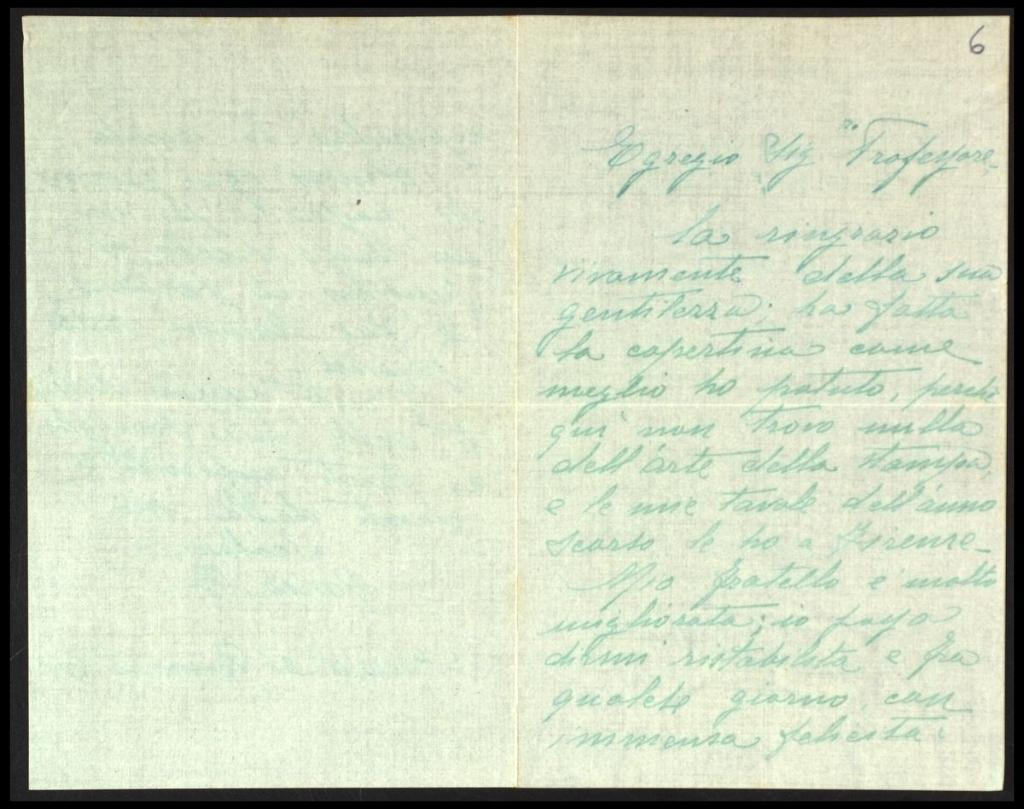 6
Egregio Sig.re Professore,
La ringrazio
vivamente della sua
gentilezza; ho fatta
la copertina come
meglio ho potuto, perchè
qui non trovo nulla
dell'arte della stampa,
e le mie tavole dell'anno
scorso le ho a Firenze_
Mio fratello è molto
migliorato; io posso
dirmi ristabilita e fra
qualche giorno, con
immensa felicità